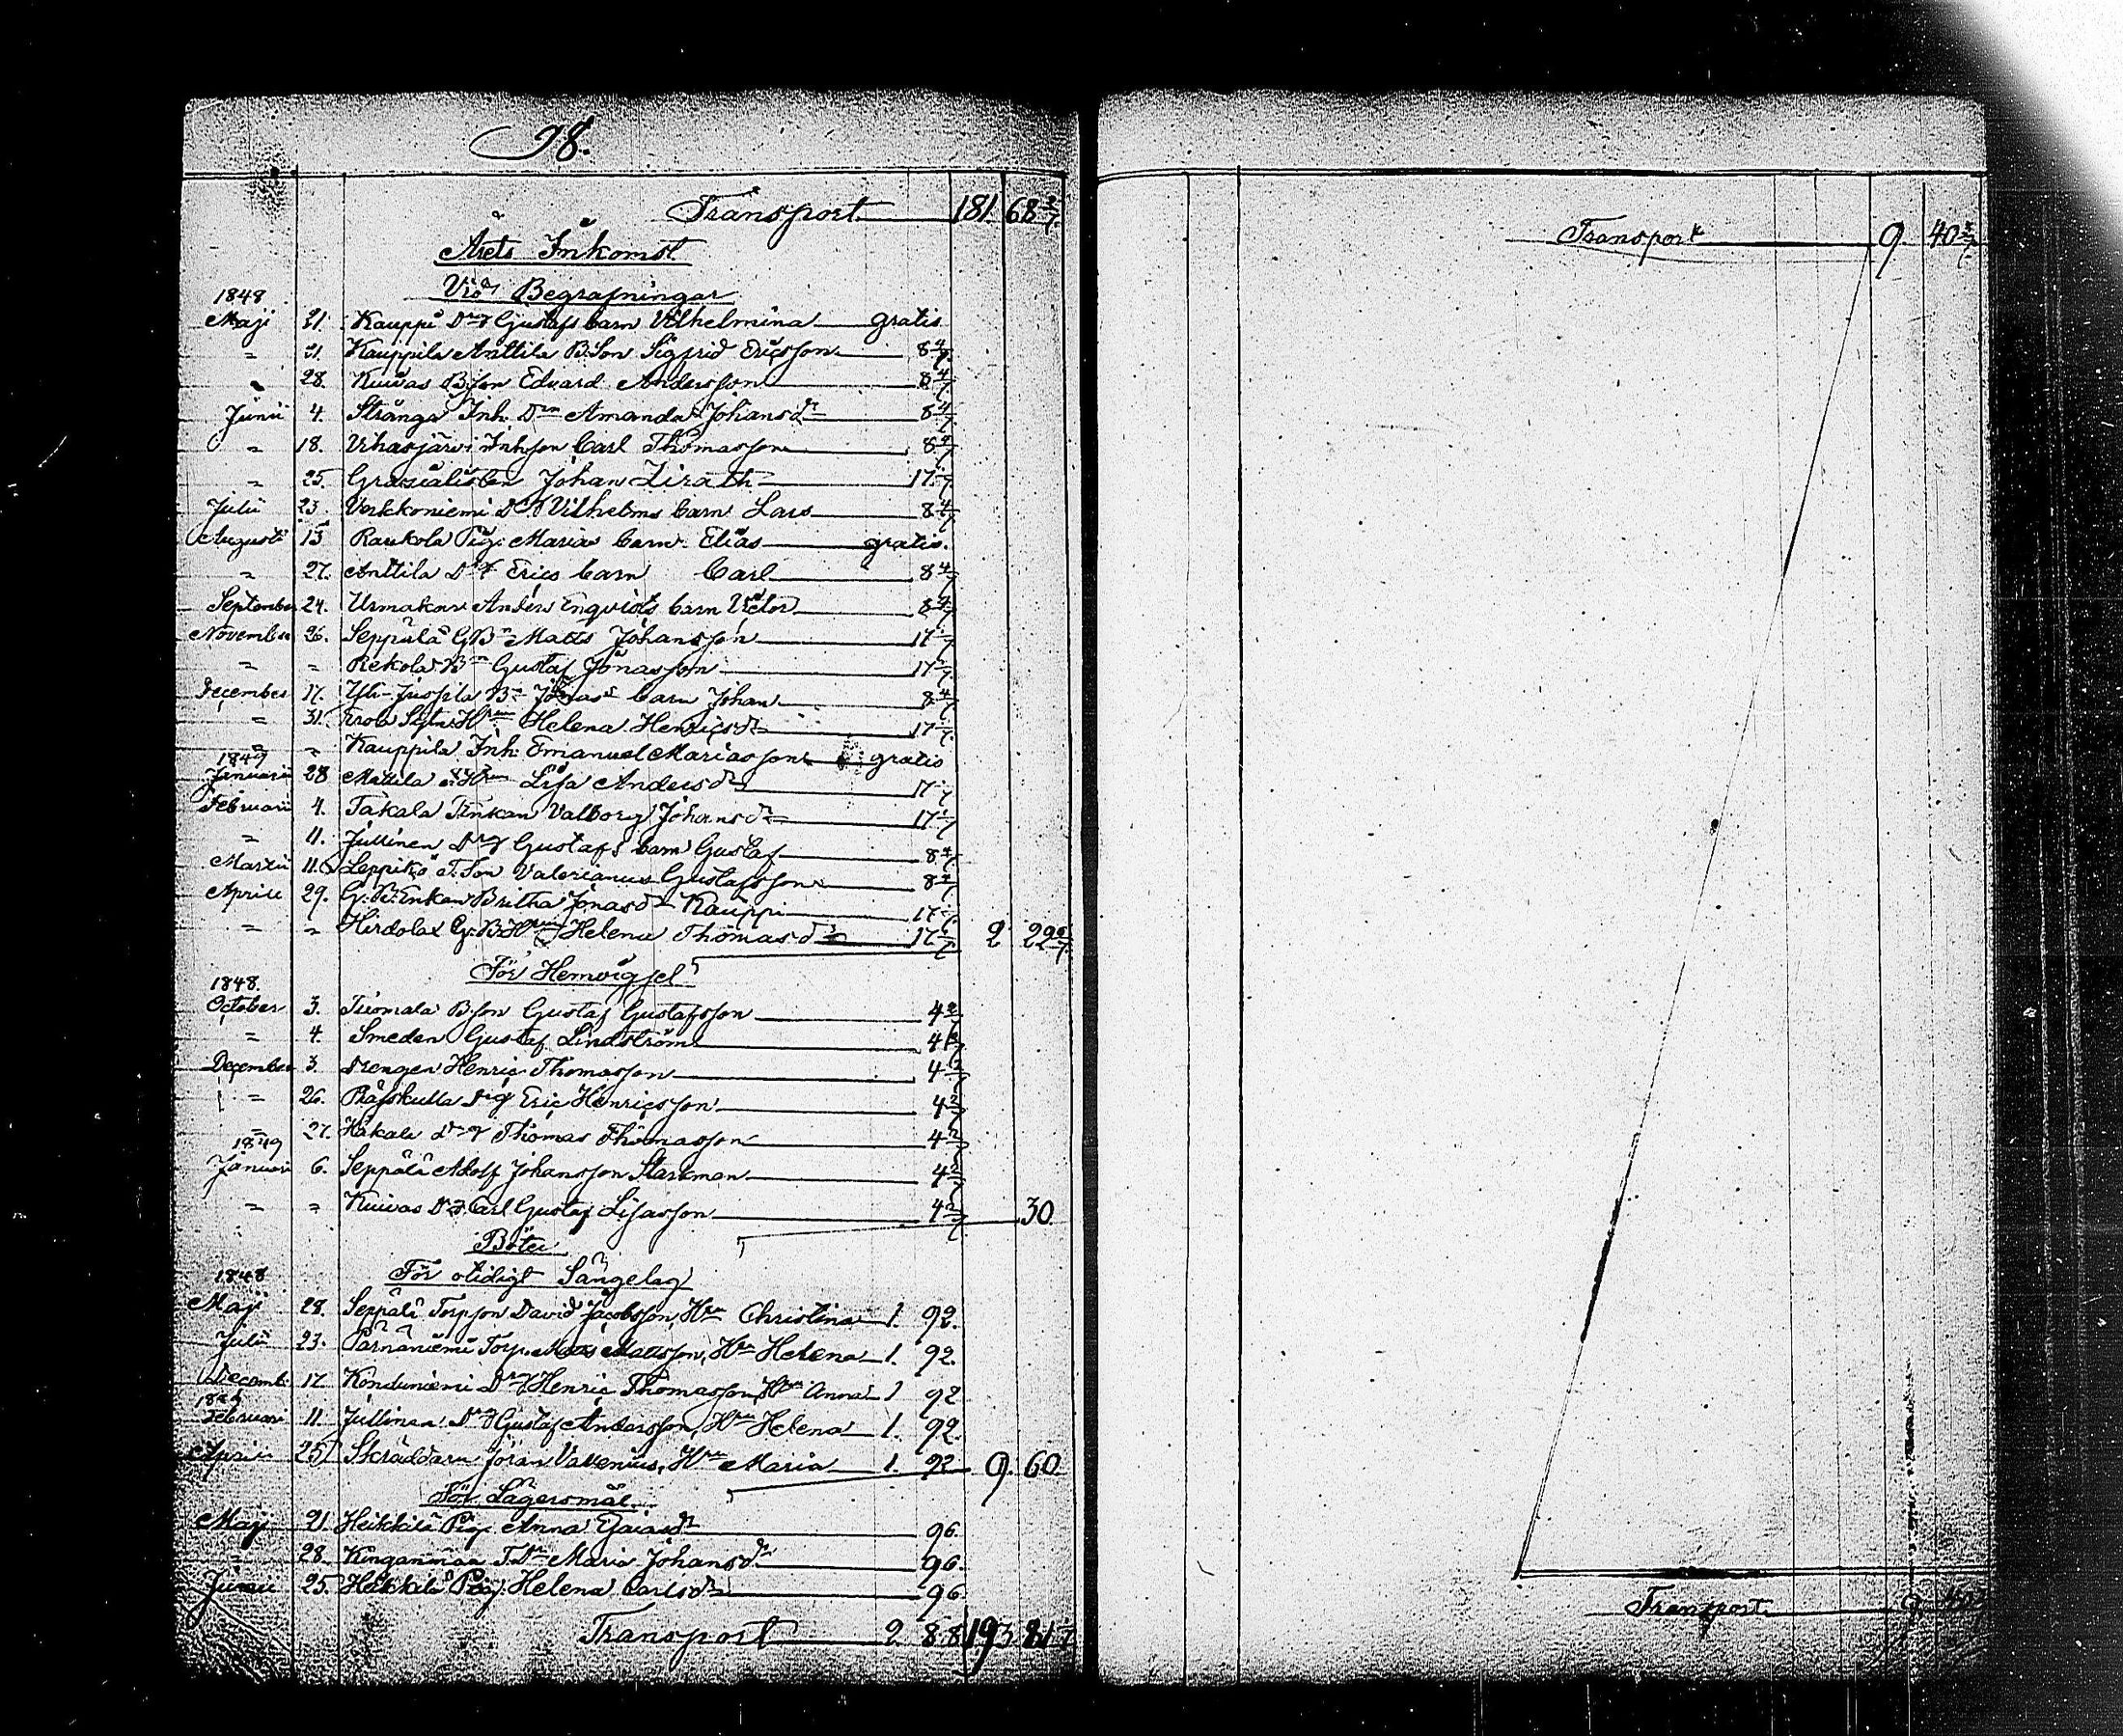 98.
Transport 181. 68 3/7.
Årets Inkomst
Vid Begrafningar
1848
Maji 21. Kauppi Drg Gustafs barn Vilhelmina gratis
" 21. Kauppila Anttila B.Son Sigfrid Ericsson 8 4/7
" 28. Kuivas B.son Edvard Andersson 8 4/7
Junii 4. Strånga Inh. Drn Amanda Johansdr 8 4/7
" 18. Inh.son Carl Thomasson 8 4/7
" 25. Johan Lirath 17 1/7
Julii 23. Verkkoniemi Drg Vilhelms barn Lars 8 4/7
Augusti 13 Raukola Pig. Marias barn Elias gratis.
" 27. Anttila Drg Erics barn Carl 8 4/7
September 24. Urmakar Anders Enqvists barn Victor 8 4/7
November 26. Seppälä G.Bn Matts Johansson 17 1/7
" " Rekola Bn Gustaf Jonasson 17 1/7
December 17. Yli-Jussila Bn Jonas barn Johan 8 4/7
" 31. Hrun Helena Henricsdr 17 1/7
" " Kauppila Inh. Emanuel Mariasson gratis
1849
Januarii 28 Mattila Hrun Lisa Andersdr 17 1/7
Februari 4. Takala Enkan Valborg Johansdr 17 1/7
" 11. Jullinen Drg Gustafs barn Gustaf 8 4/7
Martii 11. Leppikö T.Son Valerianus Gustafsson 8 4/7
Aprill 29. G.B.Enkan Britha Jonasdr Kauppi 17 1/7
" " Hirdola G.B.Hru Helena Thomasdr 17 1/7 2 22 6/7.
För Hemvigsel
1848.
October 3. Tuomala B.son Gustaf Gustafsson 4 2/7
" 4. Smeden Gustaf Lindström 4 2/7
December 3. Drengen Henric Thomasson 4 2/7
" 26. Påfskulla Drg Eric Henricsson 4 2/7
" 27. Hakala Drg Thomas Thomasson 4 2/7
1849
Januari 6. Seppälä Adolf Johansson Starkman 4 2/7
" " Kuivas Drg Carl Gustaf Lisasson 4 2/7 30.
Böter
För otidigt Sängelag
1848
Maji 28. Seppälä Torpson David Jacobsson, Hru Christina 1. 92.
Julii 23. Pärnäniemi Torp. Matts Mattsson, Hru Helena 1. 92.
Decemb. 17. Konduniemi Drg Henric Thomasson, Hru Anna 1 92
1849
Februari 11. Jullinen Drg Gustaf Andersson, Hru Helena 1. 92.
April 25 Skräddaren Jöran Vallenius, Hru Maria 1. 92 9. 60.
För Lägersmål
Maji 21. Heikkilä Pig. Anna 96.
" 28. Kinganmaa T.Dr Maria Johansdr 96.
Junii 25. Heikkilä Pig. Helena Carlsdr 96
Transport 2 88 193 81 2/7
Transport 9 40 2/7
Transport 9 40 2/7